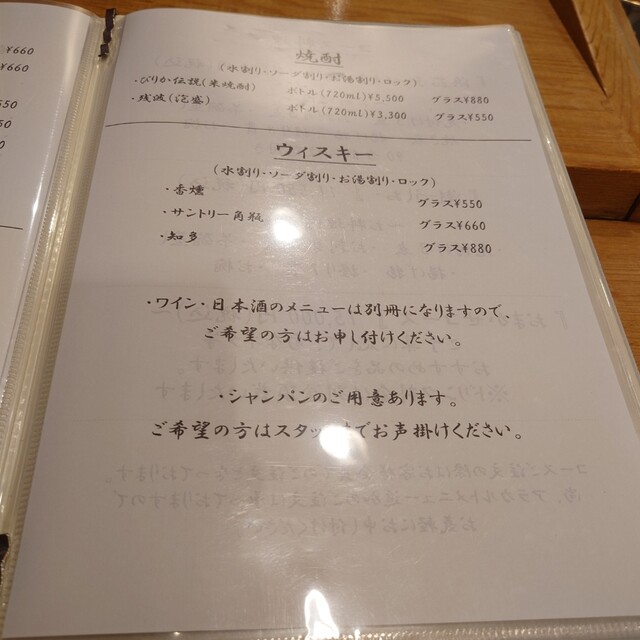 ¥660
¥660
550
550
焼酎
(水割り・ソーダ割り・お湯割り・ロック)
・ぴりか伝説(米焼酎) ボトル(720ml)¥5,500 グラス¥880
・残波(泡盛) ボトル(720ml)¥3,300 グラス¥550
ウィスキー
(水割り・ソーダ割り・お湯割り・ロック)
・香燻 グラス¥550
・サントリー角瓶 グラス¥660
・知多 グラス¥880
・ワイン・日本酒のメニューは別冊になりますので、
ご希望の方はお申し付けください。
・シャンパンのご用意あります。
ご希望の方はスタッフまでお声掛けください。